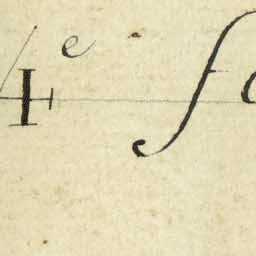 4e f